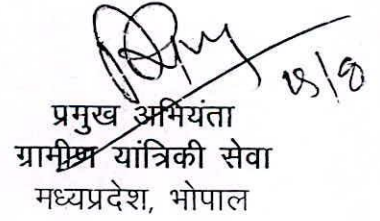 प्रमुख अभियंता
ग्रामीण यांत्रिकी सेवा
मध्यप्रदेश, भोपाल